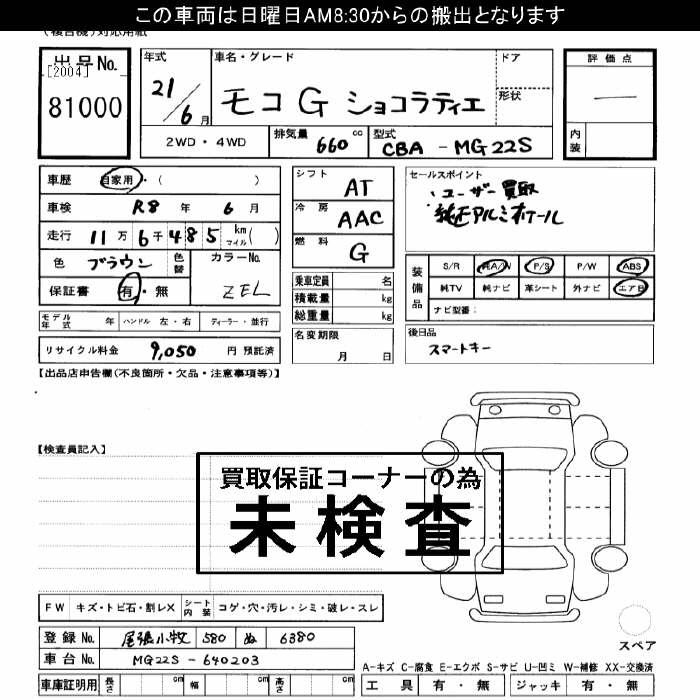 この車両は日曜日AM8:30からの搬出となります
(複合機)対応用紙
出品No.
[2004]
81000
年式
21/6月
車名・グレード
モコ G ショコラティエ
ドア
形状
評価点
—
内装
2WD・4WD
排気量 660 cc
型式 CBA - MG22S
車歴 自家用・( )
車検 R8 年 6 月
走行 11万6千485 km マイル( )
色 ブラウン 色替 カラーNo. ZEL
保証書 有・無
シフト AT
冷房 AAC
燃料 G
乗車定員 名
積載量 kg
総重量 kg
名変期限
月 日
セールスポイント
・ユーザー買取
・純正アルミホイール
装備品
S/R 純A/W P/S P/W ABS
純TV 純ナビ 革シート 外ナビ エアB
ナビ型番:
後日品
スマートキー
モデル年式 年 ハンドル 左・右 ディーラー・並行
リサイクル料金 9,050 円 預託済
【出品店申告欄(不良箇所・欠品・注意事項等)】
【検査員記入】
買取保証コーナーの為
未検査
FW キズ・トビ石・割レX シート内装 コゲ・穴・汚レ・シミ・破レ・スレ
登録No. 尾張小牧 580 ぬ 6380
車台No. MG22S - 640203
車庫証明用 長さ cm 幅 cm 高さ cm
スペア
A-キズ C-腐食 E-エクボ S-サビ U-凹ミ W-補修 XX-交換済
工具 有・無 ジャッキ 有・無